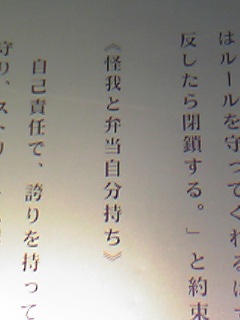 はルールを守ってくれるは
反したら閉鎖する。」と約束
《怪我と弁当自分持ち》
自己責任で、誇りを持って
守り、スト